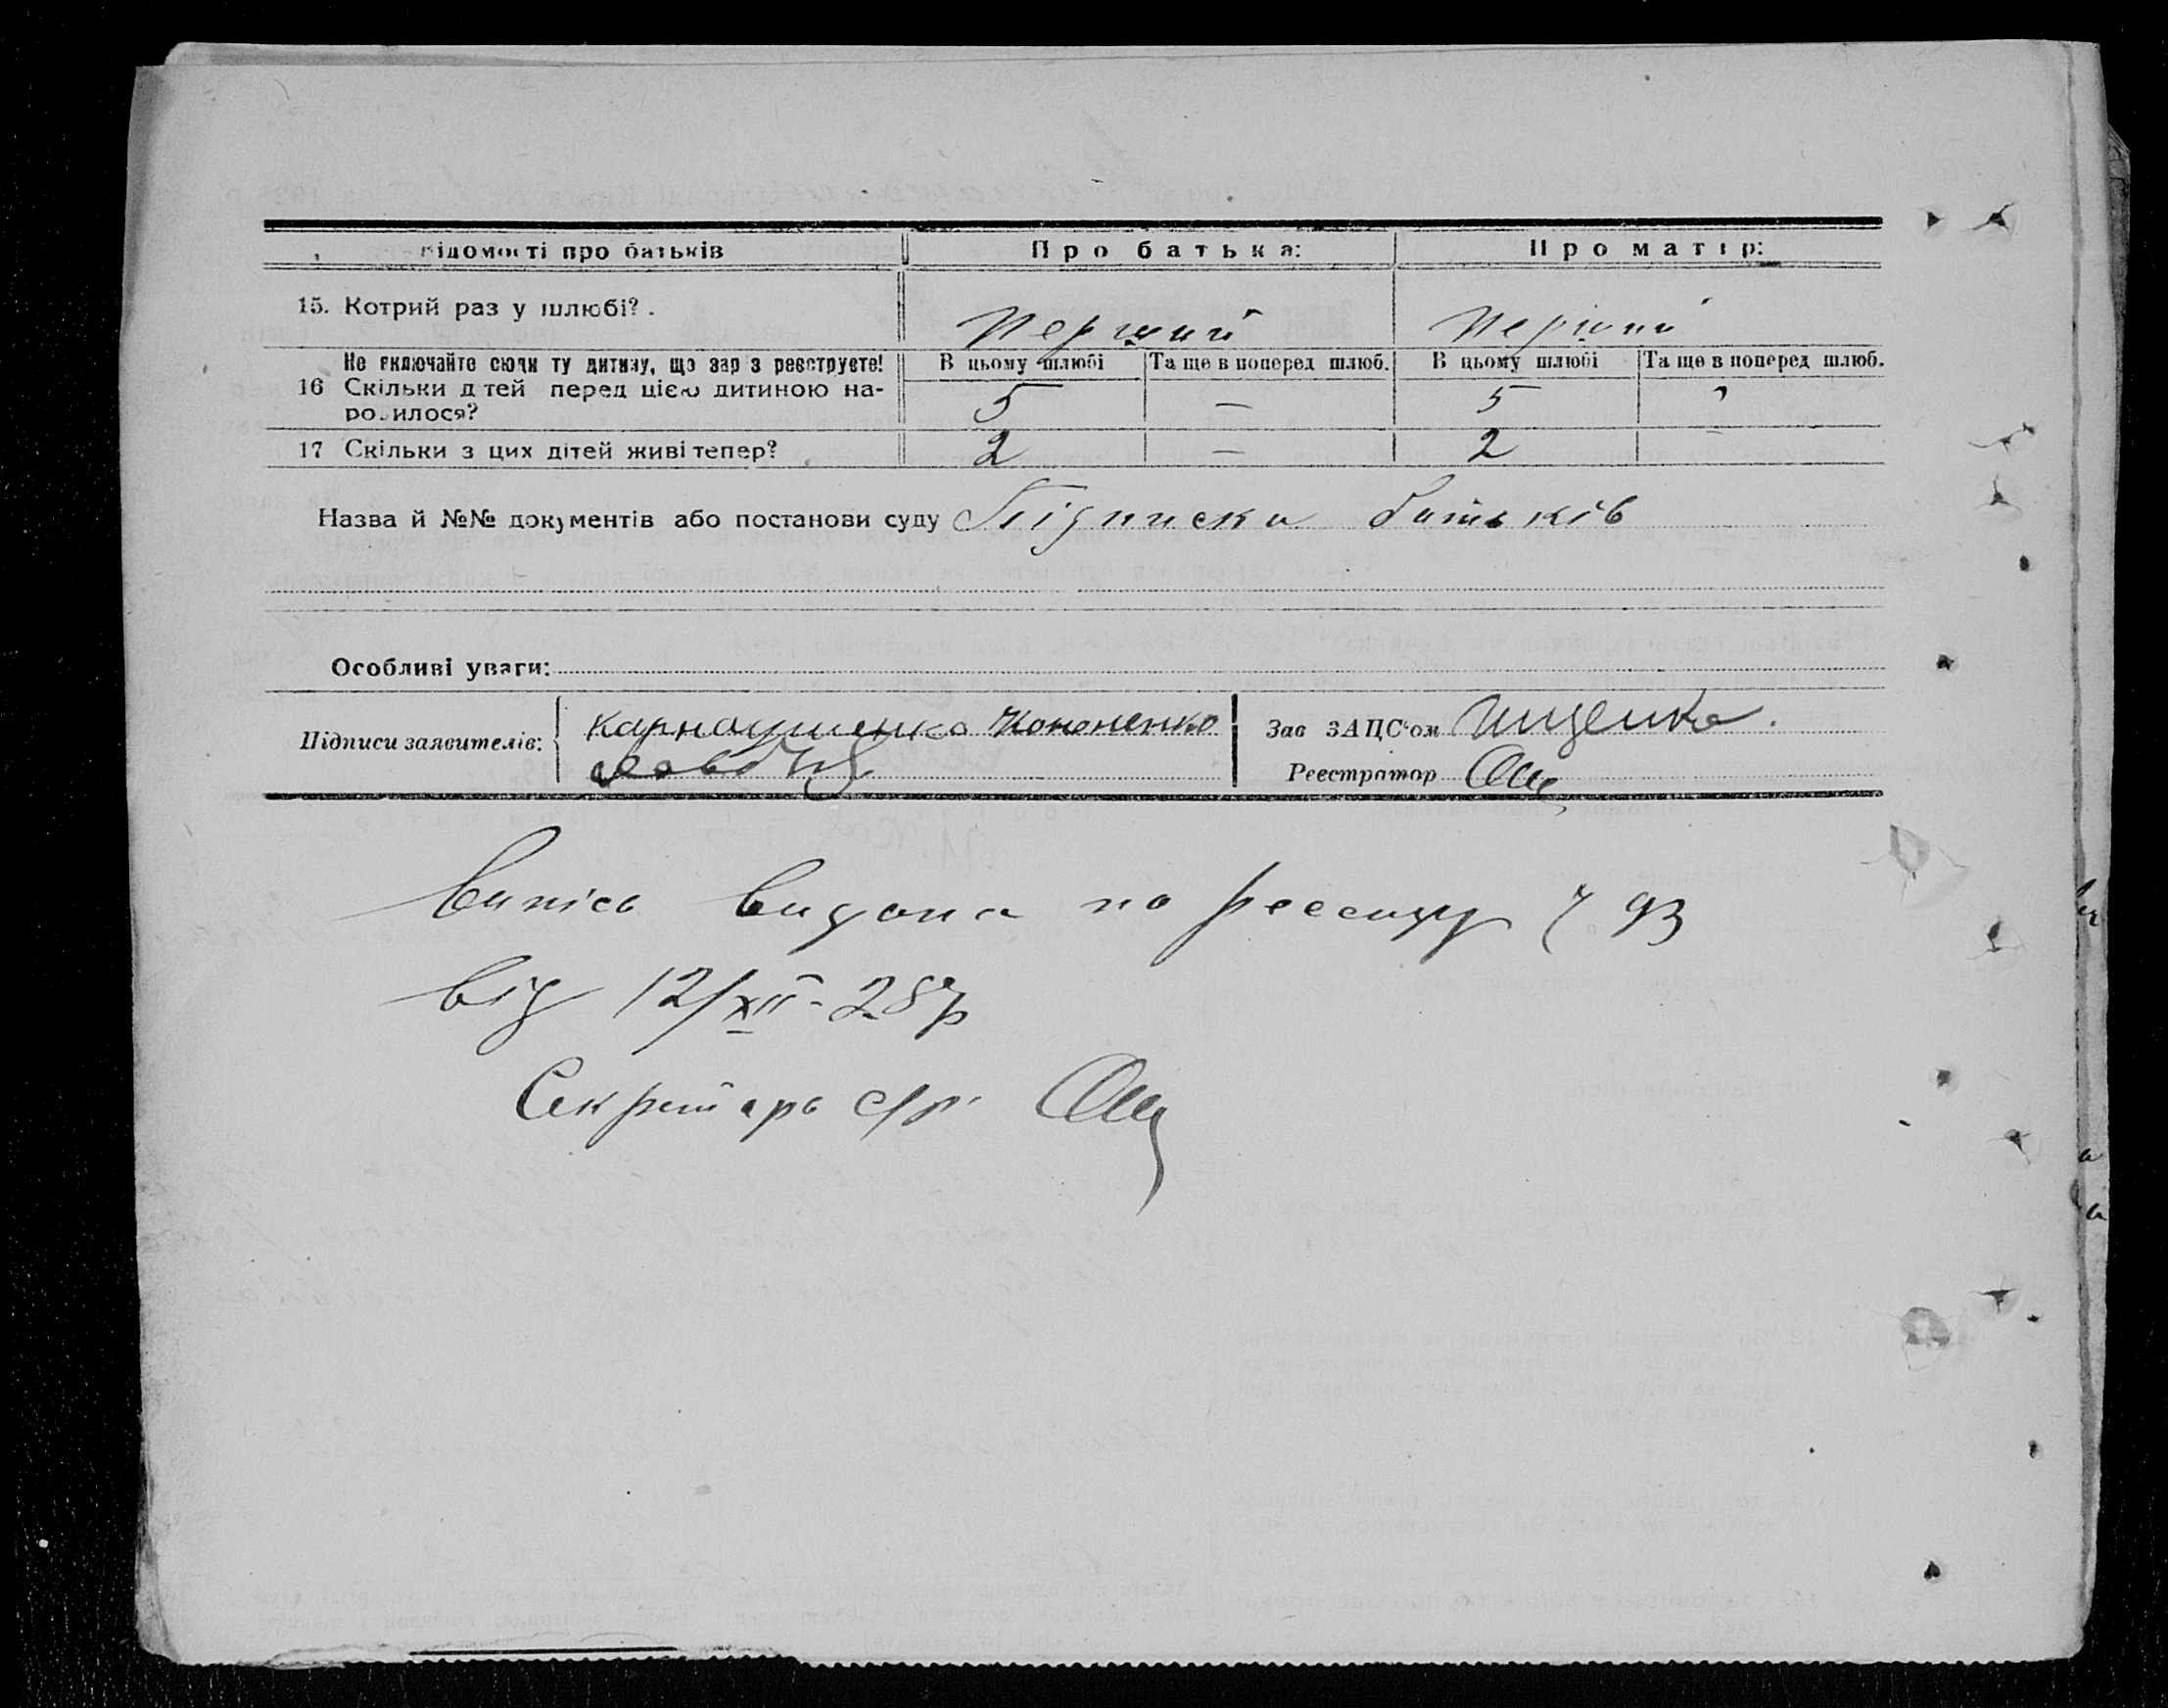 Відомості про батьків Про батька: Про матір:
15. Котрий раз у шлюбі? Перший Перший
Не включайте сюди ту дитину, що зараз реєструєте! В цьому шлюбі Та ще в поперед шлюб. В цьому шлюбі Та ще в поперед шлюб.
16 Скільки дітей перед цією дитиною на-
родилося? 5 — 5
17 Скільки з цих дітей живі тепер? 2 — 2 –
Назва й №№ документів або постанови суду Підписка батьків
Особливі уваги:
Підписи заявителів: Карнаушенко Кононенко
Зав ЗАЦС'ом Ищенко.
Реєстратор
Випись видана по реєстру 93
від 12/XII-28 р
Секретарь с/р